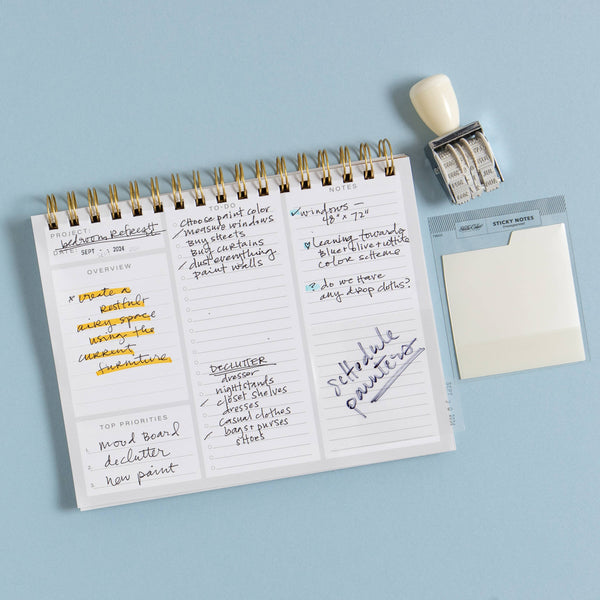 PROJECT:
bedroom Refresh
DATE: SEPT - 1 2024
OVERVIEW
x create a
restful
airy space
using the
current
furniture
TOP PRIORITIES
1. mood Board
2. declutter
3. new paint
TO-DO
choose paint color
measure windows
Buy sheets
Buy curtains
dust everything
paint walls
DECLUTTER
dresser
nightstands
closet shelves
dresses
casual clothes
bags + purses
shoes
NOTES
windows —
48" x 72"
leaning towards
blue + olive + white
color scheme
? do we have
any drop cloths?
schedule
painters
STICKY NOTES